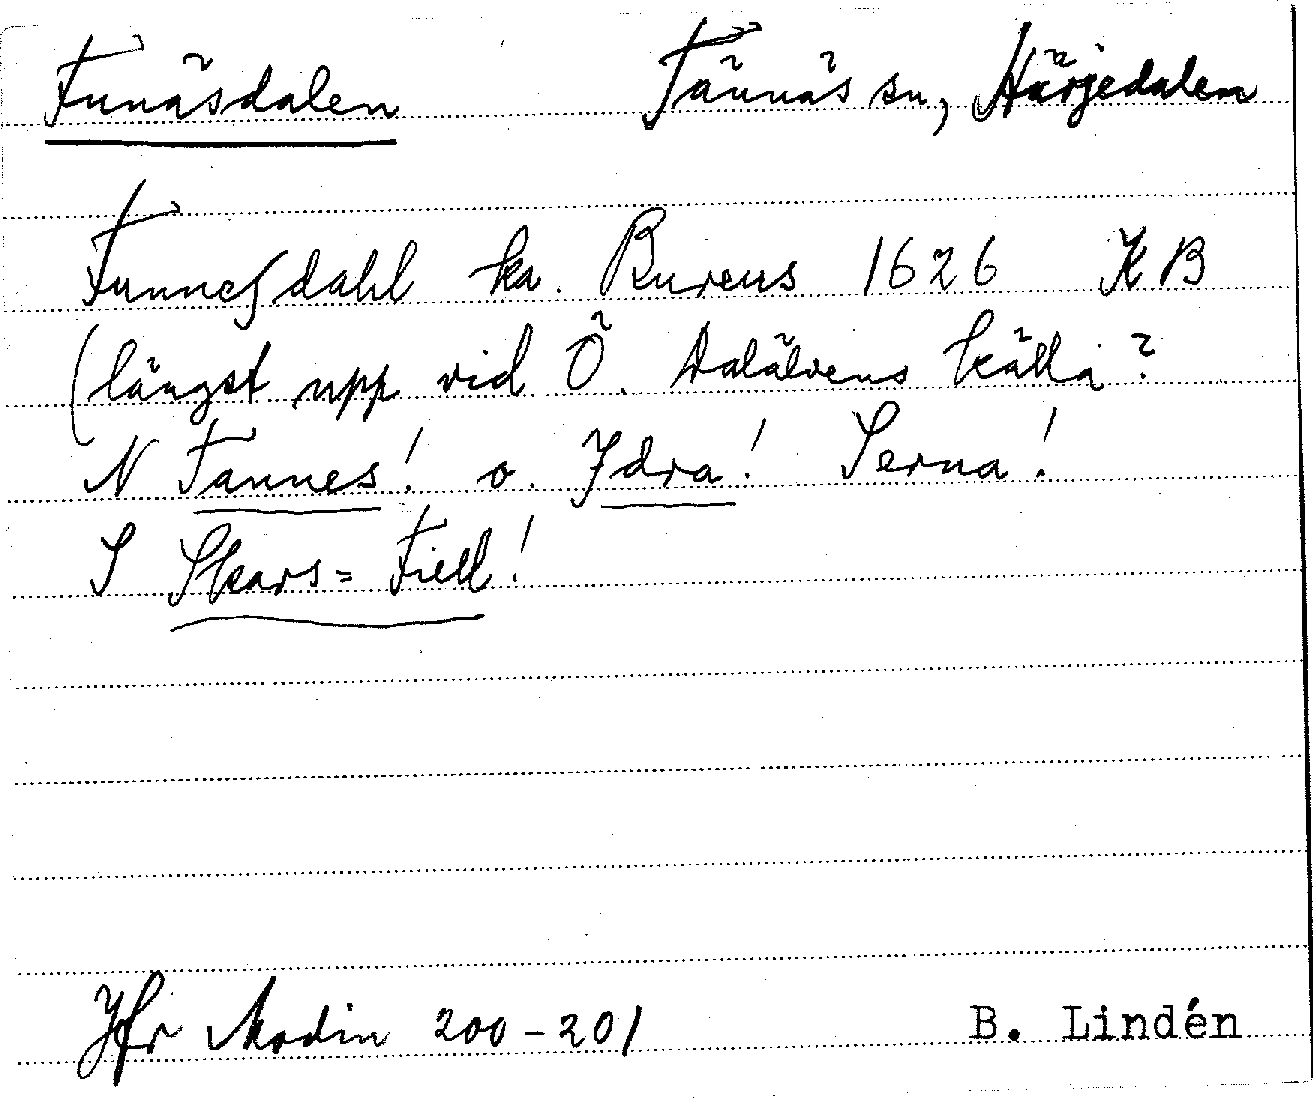 Funäsdalen Tännäs sn, Härjedalen
Funnesdahl ka. Bureus 1626 KB
(längst upp vid Ö. Dalälvens källa?
N Tannes! o. Idra! Serna!
S Skars= Fiell!
Jfr Modin 200-201 B. Lindén